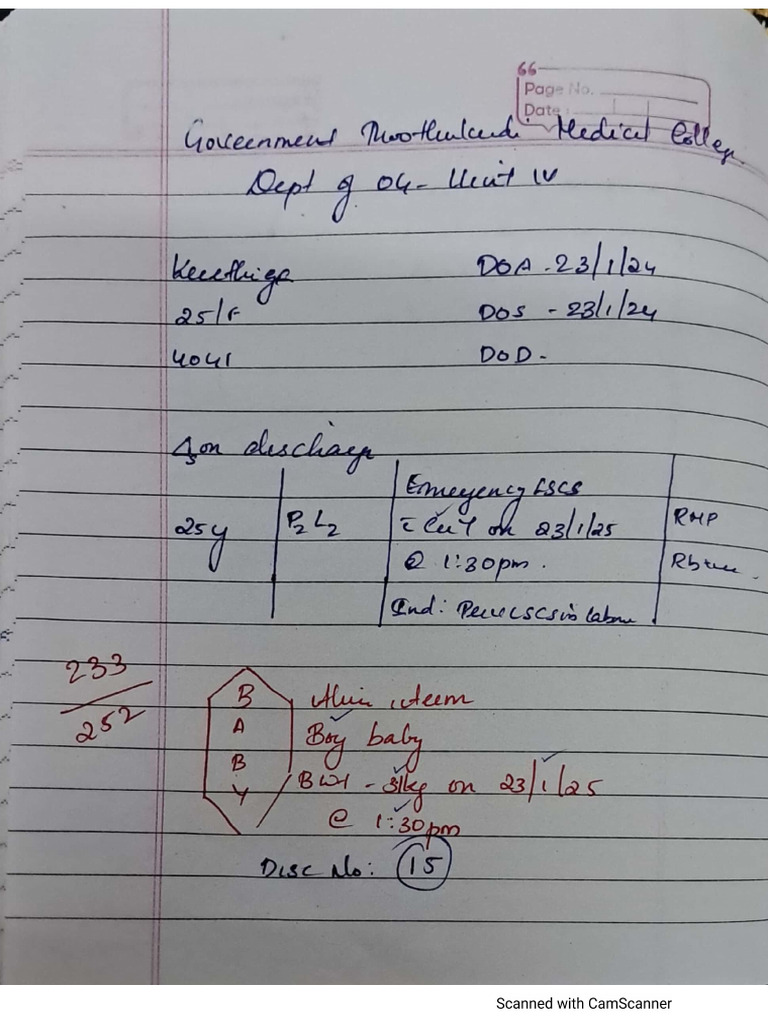 66
Page No.
Date
Government Thoothukudi Medical College
Dept of OG - Unit IV
Keerthiga DOA - 23/1/24
25/F DOS - 23/1/24
4041 DOD -
on discharge
Emergency LSCS
25y P2L2 c CuT on 23/1/25 RMP
@ 1:30pm. Rb
Ind: Prev LSCS in labour
233
252
B Alive, term
A Boy baby
B BWt - 3kg on 23/1/25
Y @ 1:30pm
Disc No: 15
Scanned with CamScanner